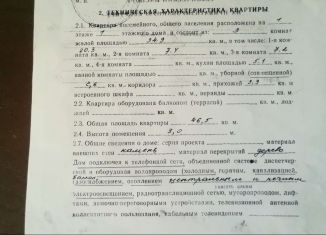 2. ТЕХНИЧЕСКАЯ ХАРАКТЕРИСТИКА КВАРТИРЫ
2.1. Квартира посемейного, общего заселения расположена на 1
этаже 1 этажного дома и состоит из: 3 комнат
жилой площадью кв. м, в том числе: 1-я комната
20.3 кв. м, 2-я комната 7.4 кв. м, 3-я комната 7.2
кв. м, 4-я комната кв. м, кухни площадью 5.1 кв. м,
ванной комнаты площадью кв. м, уборной (совмещенной)
кв. м, коридора кв. м, прихожей кв. м
встроенного шкафа кв. м, веранды кв. м.
2.2. Квартира оборудована балконом (террасой) кв. м, лоджией
кв. м.
2.3. Общая площадь квартиры 46,5 кв. м.
2.4. Высота помещения 3,0 м.
2.7. Общие сведения о доме: серия проекта материал
внешних стен камень материал перекрытий дерево
Дом подключен к телефонной сети, объединенной системе диспетчерской
и оборудован водопроводом (холодным, горячим), канализацией,
газоснабжением, отоплением центральным и
указать каким
электроосвещением, радиотрансляционной сетью, мусоропроводом, лифтами,
замочно-переговорными устройствами, телевизионной антенной
коллективного пользования, кабельным телевидением